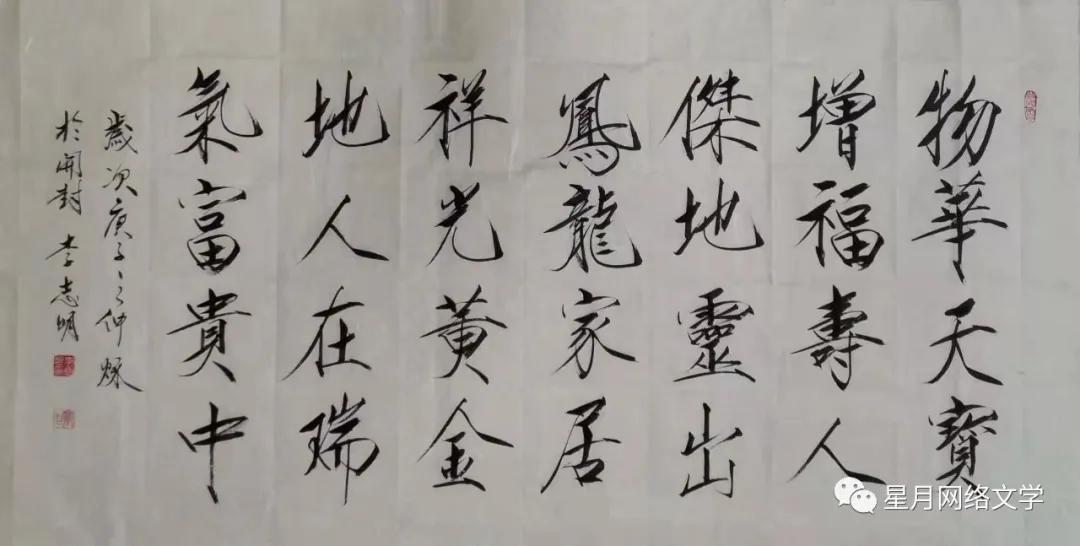 物華天寳
增福壽人
傑地靈出
鳳龍家居
祥光黄金
地人在瑞
氣富貴中
歲次庚子之仲秌
於開封 李志明
星月网络文学